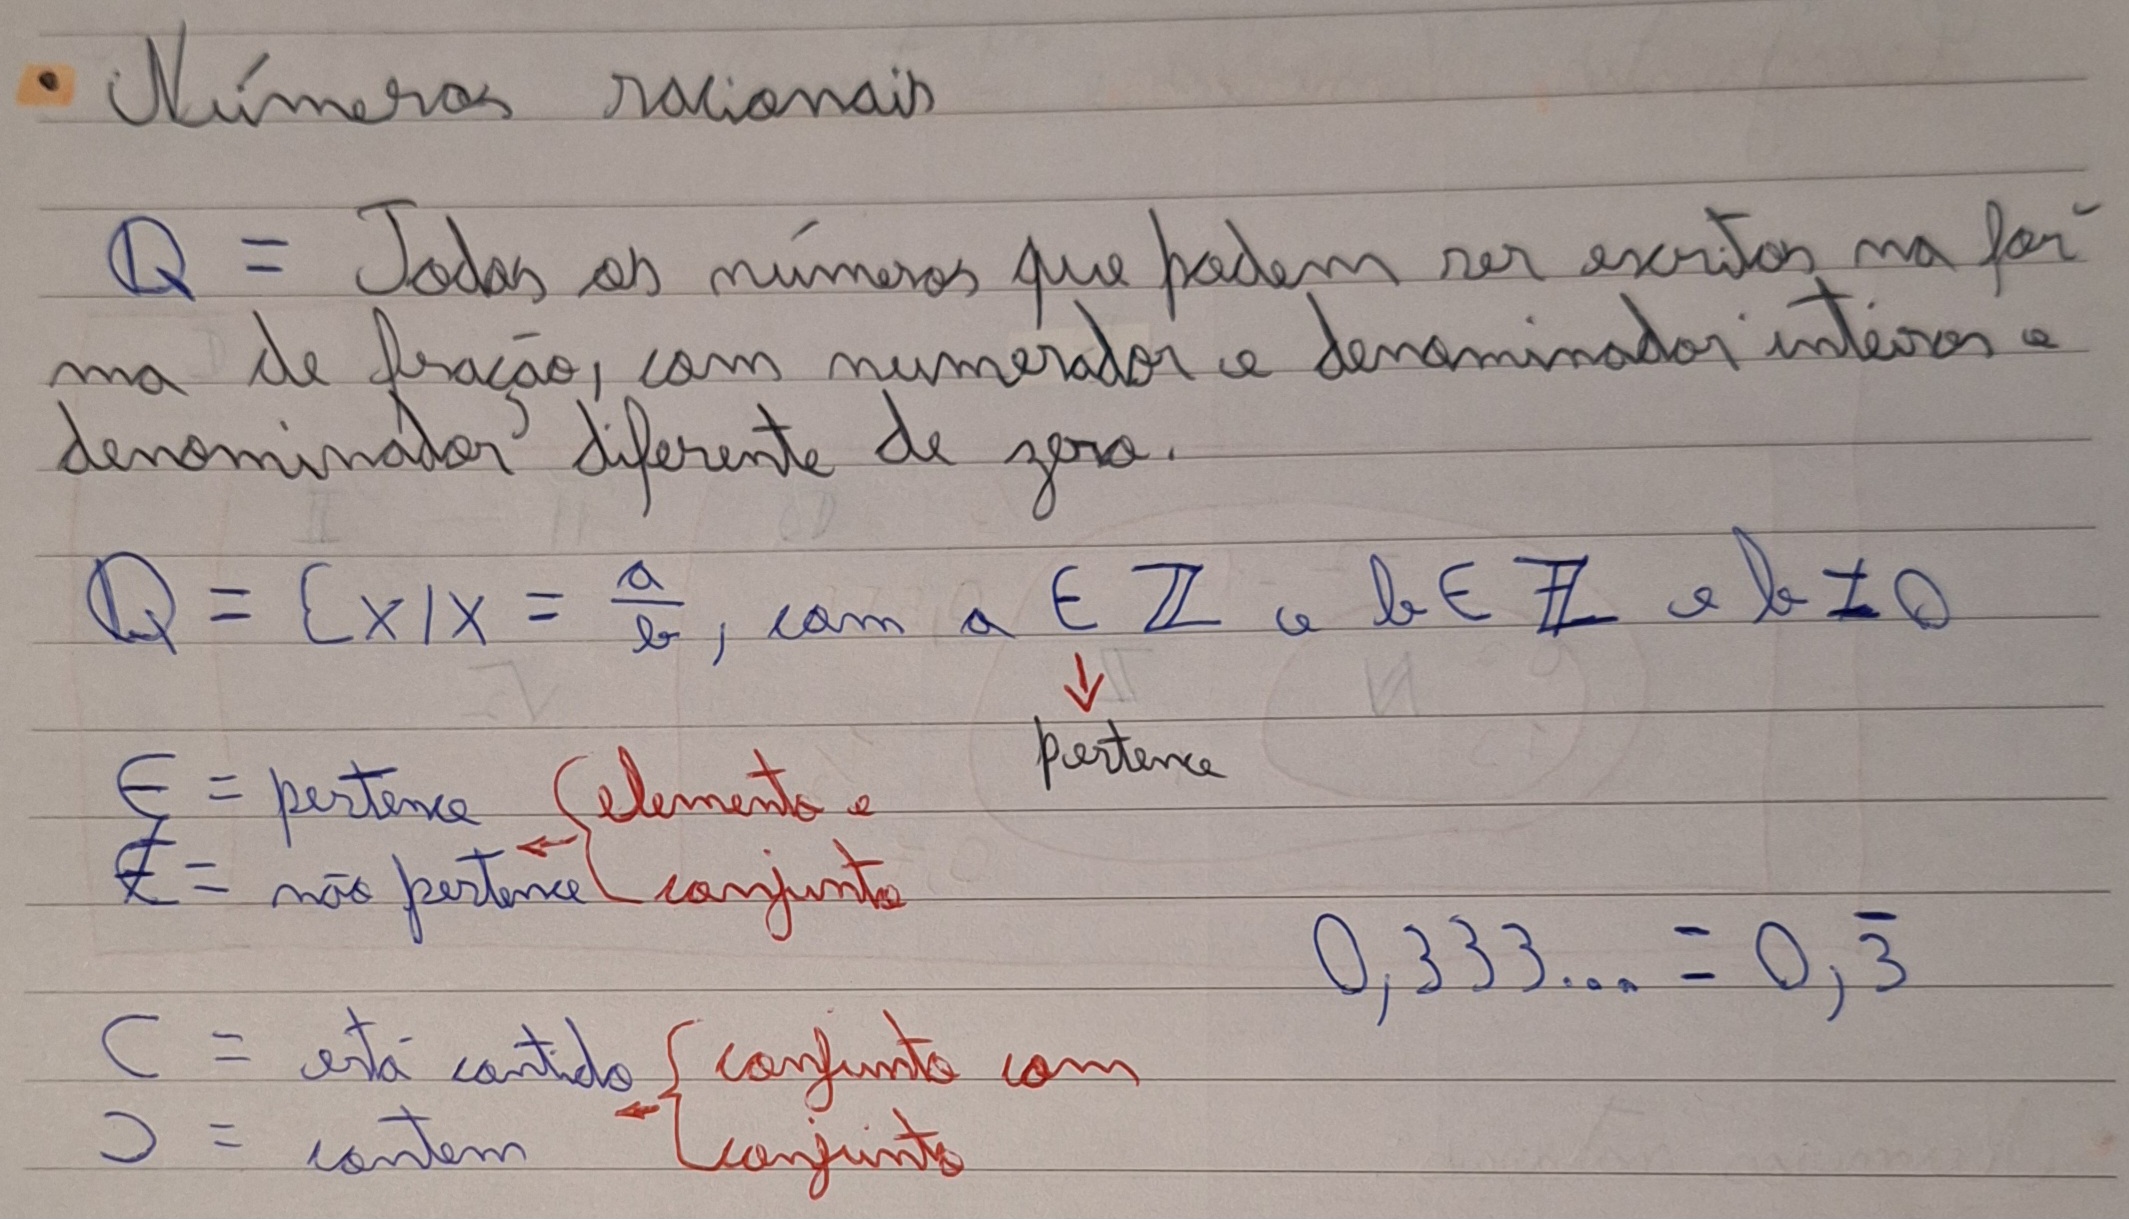 • Números racionais
ℚ = Todos os números que podem ser escritos na for-
ma de fração, com numerador e denominador inteiros e
denominador diferente de zero.
ℚ = {x/x = a/b, com a ∈ ℤ e b ∈ ℤ e b ≠ 0
↓
pertence
∈ = pertence { elemento e
∉ = não pertence ← conjunto
0,333... = 0,3̅
⊂ = está contido { conjunto com
⊃ = contem ← conjunto